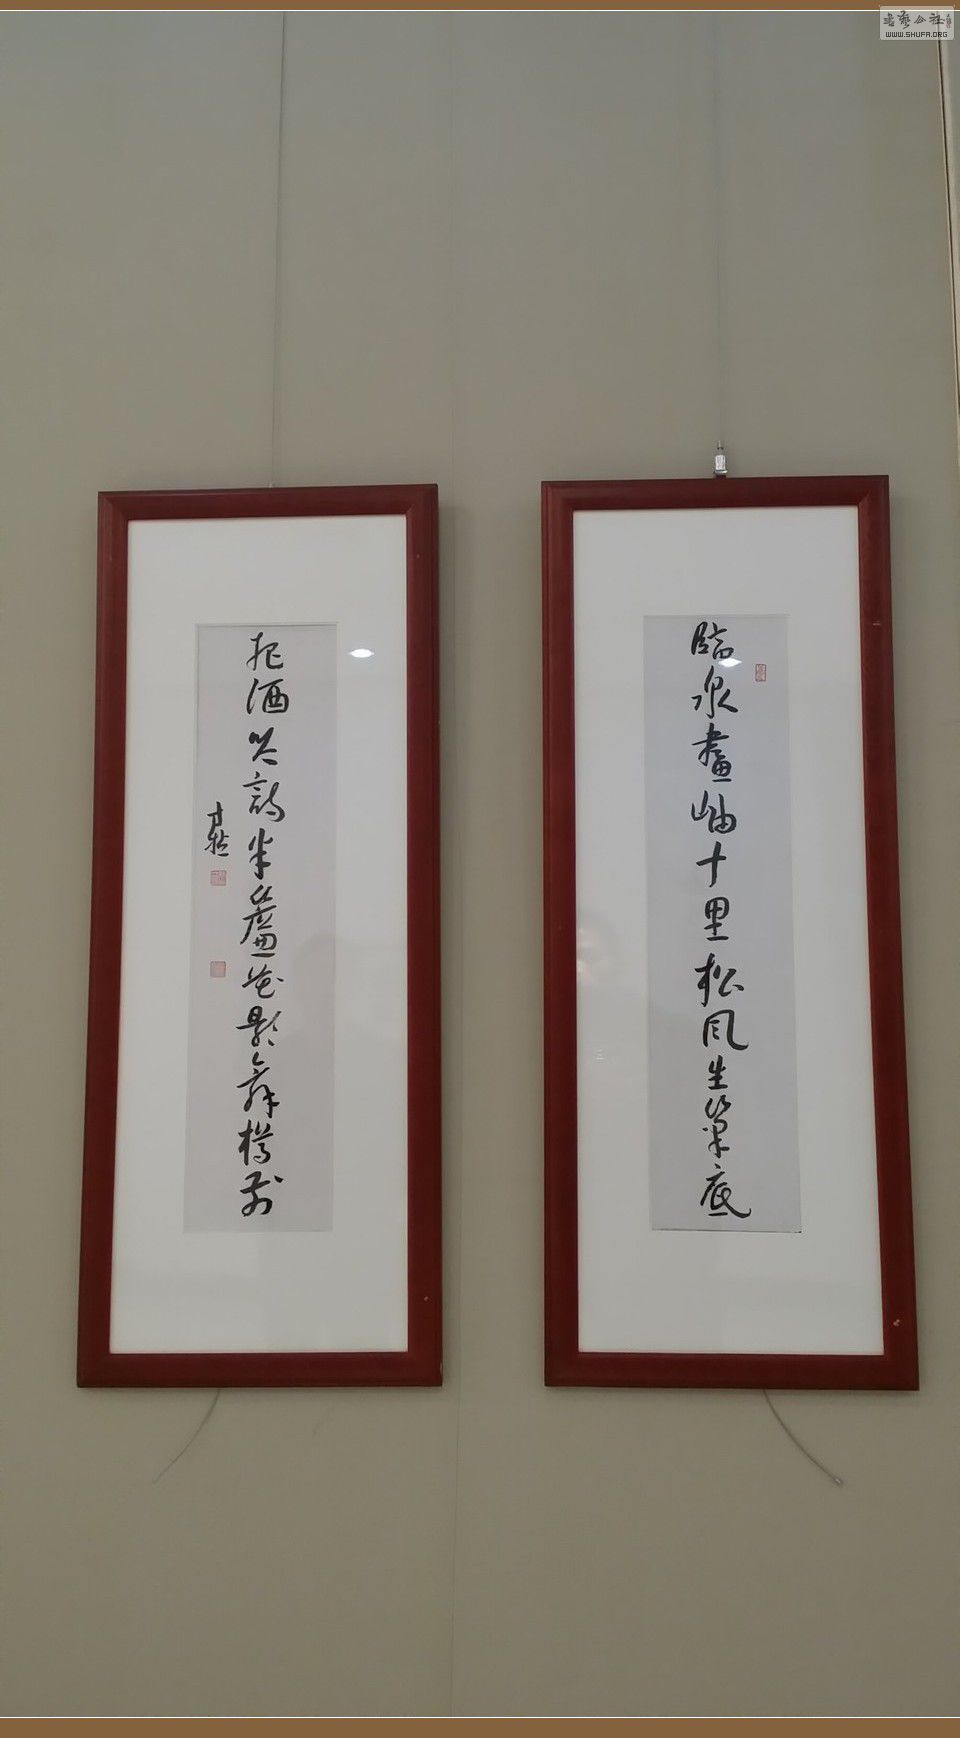 臨泉畫岫十里松風生筆底
把酒吟詩半簾花影舞樽前
书艺公社
WWW.SHUFA.ORG